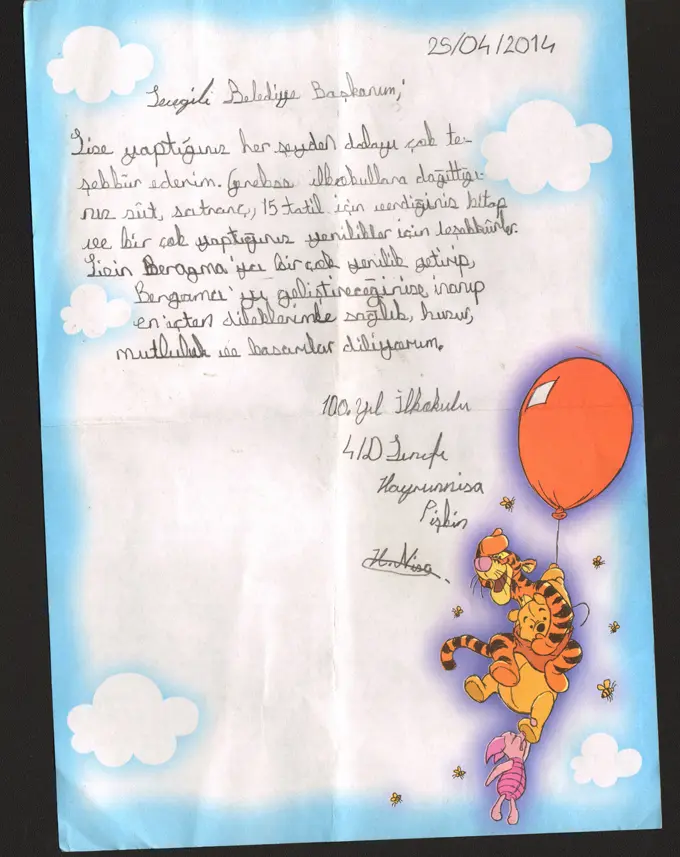 25/04/2014
Sevgili Belediye Başkanım,
Size yaptığınız her şeyden dolayı çok te-
şekkür ederim. Gerekse ilkokullara dağıttığı-
nız süt, satranç, 15 tatil için verdiğiniz kitap
ve bir çok yaptığınız yenilikler için teşekkürler.
Sizin Beragma'ya bir çok yenilik getirip,
Bergama'yı geliştireceğinise inanıp
en içten dileklerimle sağlık, huzur,
mutluluk ve başarılar diliyorum.
100. Yıl İlkokulu
4/D Sınıfı
Hayrunnisa
Pişkin
H.Nisa